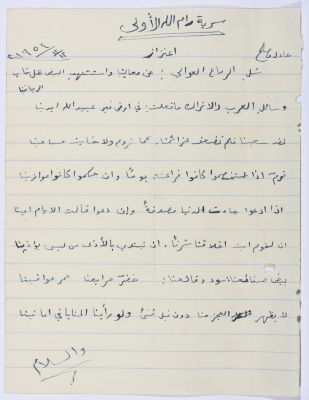 سرية رام الله الأولى
اعتزاز
سل الرماح العوالي : عن معالينا واستشهد البيض هل خاب الرجا فينا
وسائل العرب والاتراك ما فعلت : في ارض قبر عبيد الله ايدينا
لقد سعينا فلم تضعف عزائمنا : عما نروم ولا خابت مساعينا
قوم اذا استخصموا كانوا فراعنة يوما وان حكموا كانوا موازينا
اذا ادعوا جاءت الدنيا مصدقة وإن دعوا قالت الايام امينا
انا لقوم ابت اخلاقنا شرفا : ان نبتدي بالأذى من ليس يؤذينا
بيض صنائعنا سود وقائعنا : خضر مرابعنا حمر مواضينا
لا يظهر العجز منا دون نيل منى ولو رأينا المنايا في امانينا
والسلام